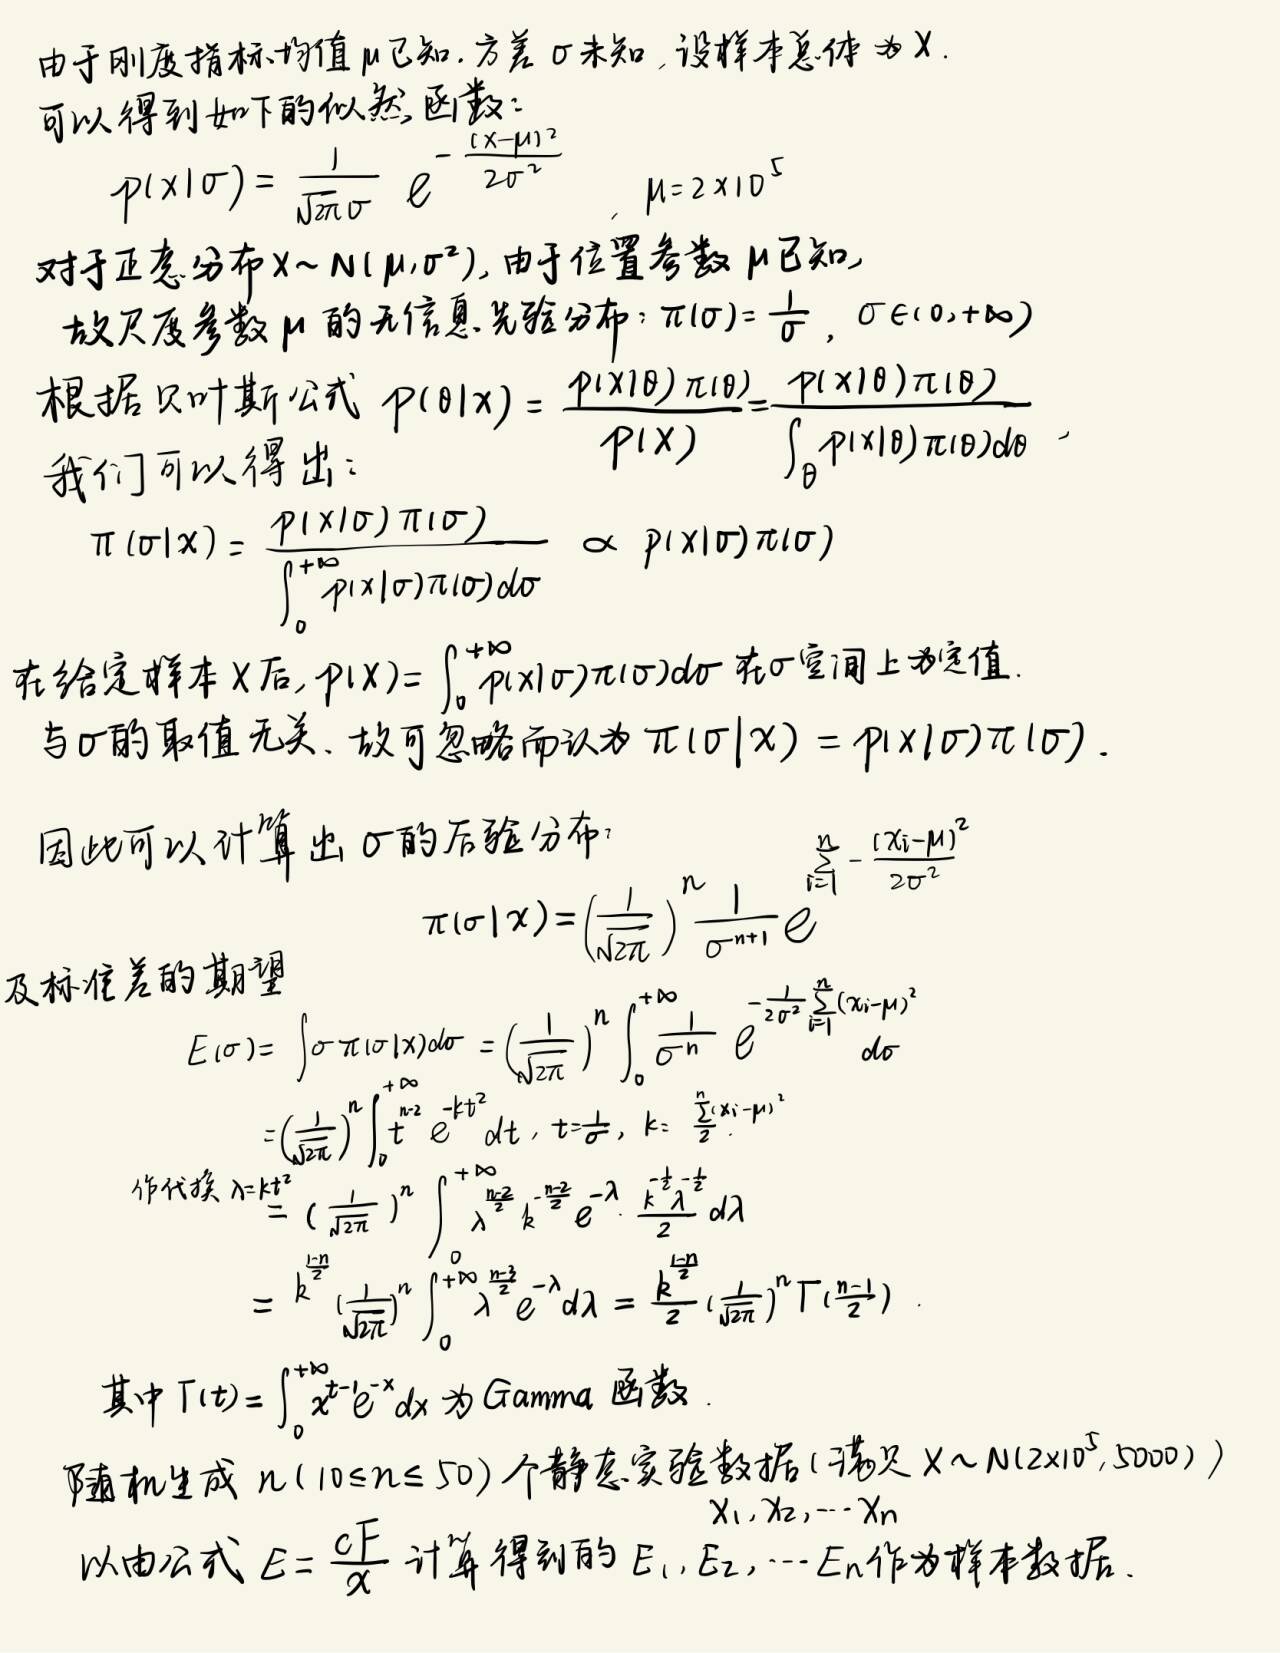 由于刚度指标均值 μ已知.方差 σ未知,设样本总体为X.
可以得到如下的似然函数:
p(x|σ) = \frac{1}{\sqrt{2π}σ} e^{-\frac{(x-μ)^2}{2σ^2}} , μ=2×10^5
对于正态分布X~N(μ,σ²),由于位置参数μ已知,
故尺度参数μ的无信息先验分布:π(σ)=\frac{1}{σ}, σ∈(0,+∞)
根据贝叶斯公式 p(θ|x) = \frac{p(x|θ)π(θ)}{p(x)} = \frac{p(x|θ)π(θ)}{\int_θ p(x|θ)π(θ)dθ},
我们可以得出:
π(σ|x) = \frac{p(x|σ)π(σ)}{\int_0^{+∞} p(x|σ)π(σ)dσ} ∝ p(x|σ)π(σ)
在给定样本X后,p(x)=\int_0^{+∞} p(x|σ)π(σ)dσ 在σ空间上为定值.
与σ的取值无关.故可忽略而认为 π(σ|x) = p(x|σ)π(σ).
因此可以计算出σ的后验分布:
π(σ|x) = (\frac{1}{\sqrt{2π}})^n \frac{1}{σ^{n+1}} e^{\sum_{i=1}^n -\frac{(x_i-μ)^2}{2σ^2}}
及标准差的期望
E(σ) = \int σπ(σ|x)dσ = (\frac{1}{\sqrt{2π}})^n \int_0^{+∞} \frac{1}{σ^n} e^{-\frac{1}{2σ^2}\sum_{i=1}^n (x_i-μ)^2} dσ
= (\frac{1}{\sqrt{2π}})^n \int_0^{+∞} t^{n-2} e^{-kt^2} dt, t=\frac{1}{σ}, k= \frac{\sum^n (x_i-μ)^2}{2}.
作代换 λ=kt² = (\frac{1}{\sqrt{2π}})^n \int_0^{+∞} λ^{\frac{n-2}{2}} k^{-\frac{n-2}{2}} e^{-λ} · \frac{k^{-\frac{1}{2}} λ^{-\frac{1}{2}}}{2} dλ
= k^{\frac{1-n}{2}} (\frac{1}{\sqrt{2π}})^n \int_0^{+∞} λ^{\frac{n-3}{2}} e^{-λ} dλ = \frac{k^{\frac{1-n}{2}}}{2} (\frac{1}{\sqrt{2π}})^n Γ(\frac{n-1}{2}).
其中 Γ(t) = \int_0^{+∞} x^{t-1} e^{-x} dx 为 Gamma 函数.
随机生成 n(10≤n≤50)个静态实验数据(满足 X~N(2×10^5,5000))
x_1,x_2,⋯x_n
以由公式 E=\frac{cF}{x} 计算得到的 E_1,E_2,⋯E_n作为样本数据.